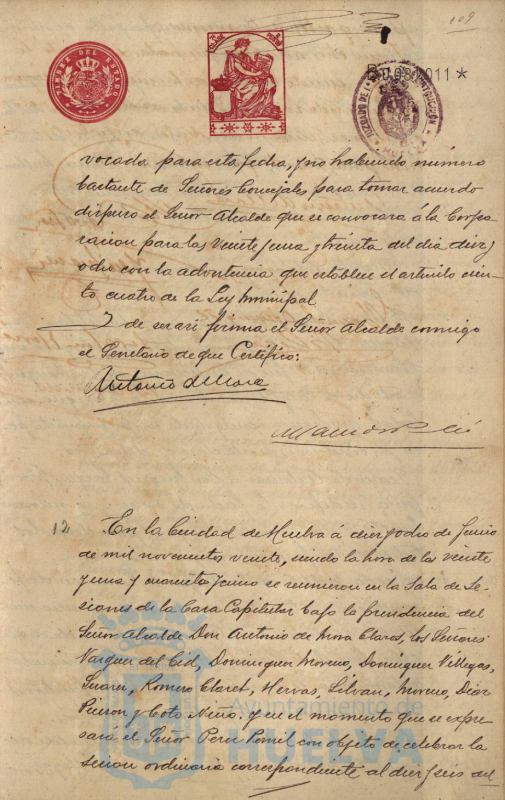 109
TIMBRE DEL ESTADO
11ª CLASE 1 PESETA
B.0.080.011 *
JUZGADO DE 1ª INSTRUCCIÓN
HUELVA
vocada para esta fecha, y no habiendo número
bastante de Señores Concejales para tomar acuerdo
dispuso el Señor Alcalde que se convocara á la Corpo
racion para las Veinte y una y treinta del dia diez y
ocho con la advertencia que establece el articulo cien
to cuatro de la Ley Municipal.
Y de ser asi firma el Señor Alcalde conmigo
el Secretario de que Certifico:
Antonio de Mora
12 En la Ciudad de Huelva á diez y ocho de Junio
de mil novecientos veinte, siendo la hora de las veinte
y una y cuarenta y cinco se reunieron en la Sala de Se
siones de la Casa Capitular bajo la Presidencia del
Señor Alcalde Don Antonio de Mora Claros, los Señores
Vazquez del Cid, Dominguez Moreno, Dominguez Villegas,
Suarez, Romero Claret, Hervas, Silvan, Moreno, Diaz
Pierón y Coto Nuño. y en el momento que se expre
sará el Señor Perez Romil con objeto de celebrar la
sesion ordinaria correspondiente al diez y seis del
Ayuntamiento de
HUELVA